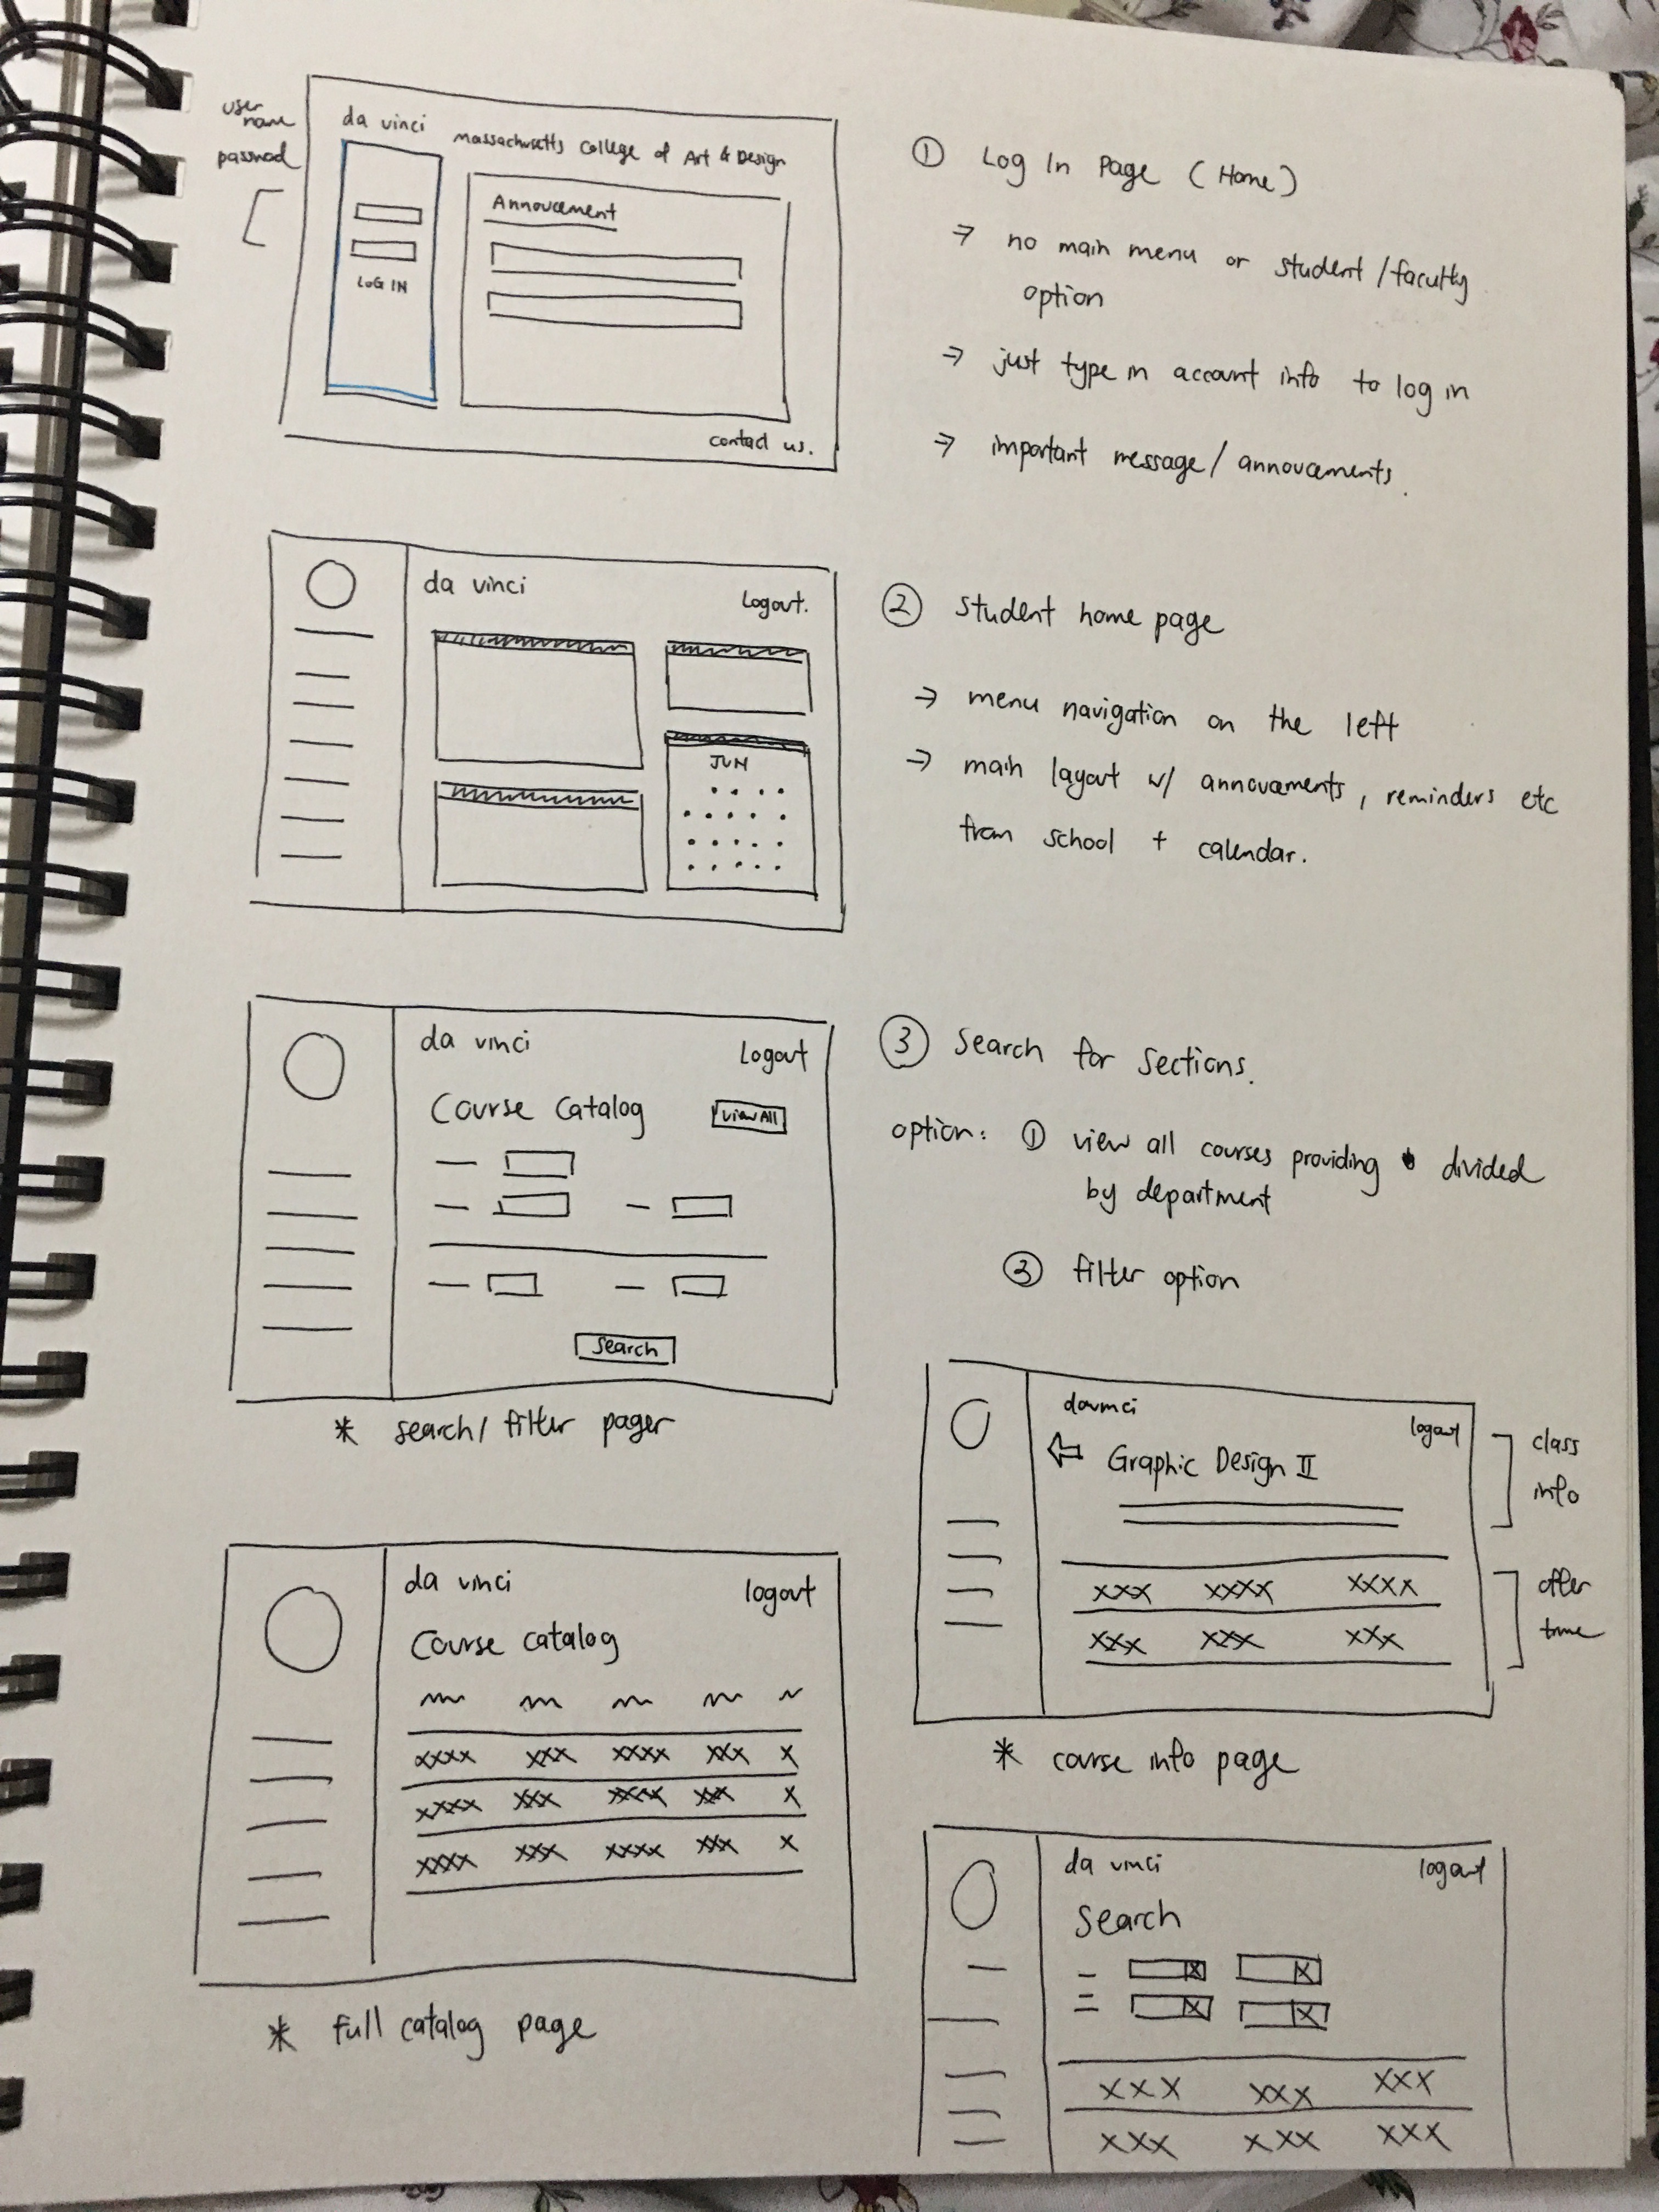 user
name
password
da vinci
Massachusetts College of Art & Design
Annoucement
LOG IN
contact us.
① Log In Page (Home)
→ no main menu or student/faculty
option
→ just type in account info to log in
→ important message/annoucements.
da vinci
Logout.
JUN
② Student home page
→ menu navigation on the left
→ main layout w/ annoucements, reminders etc
from school + calendar.
da vinci
Logout
Course Catalog
View All
Search
* search/ filter pager
③ Search for Sections.
option: ① view all courses providing divided
by department
② filter option
davinci
logout
⇐ Graphic Design II
xxx xxxx xxxx
xxx xxx xxx
class
info
offer
time
* course info page
da vinci
logout
Course catalog
xxxx xxx xxxx xxx x
xxxx xxx xxxx xxx x
xxxx xxx xxxx xxx x
* full catalog page
da vinci
logout
Search
xxx xxx xxx
xxx xxx xxx